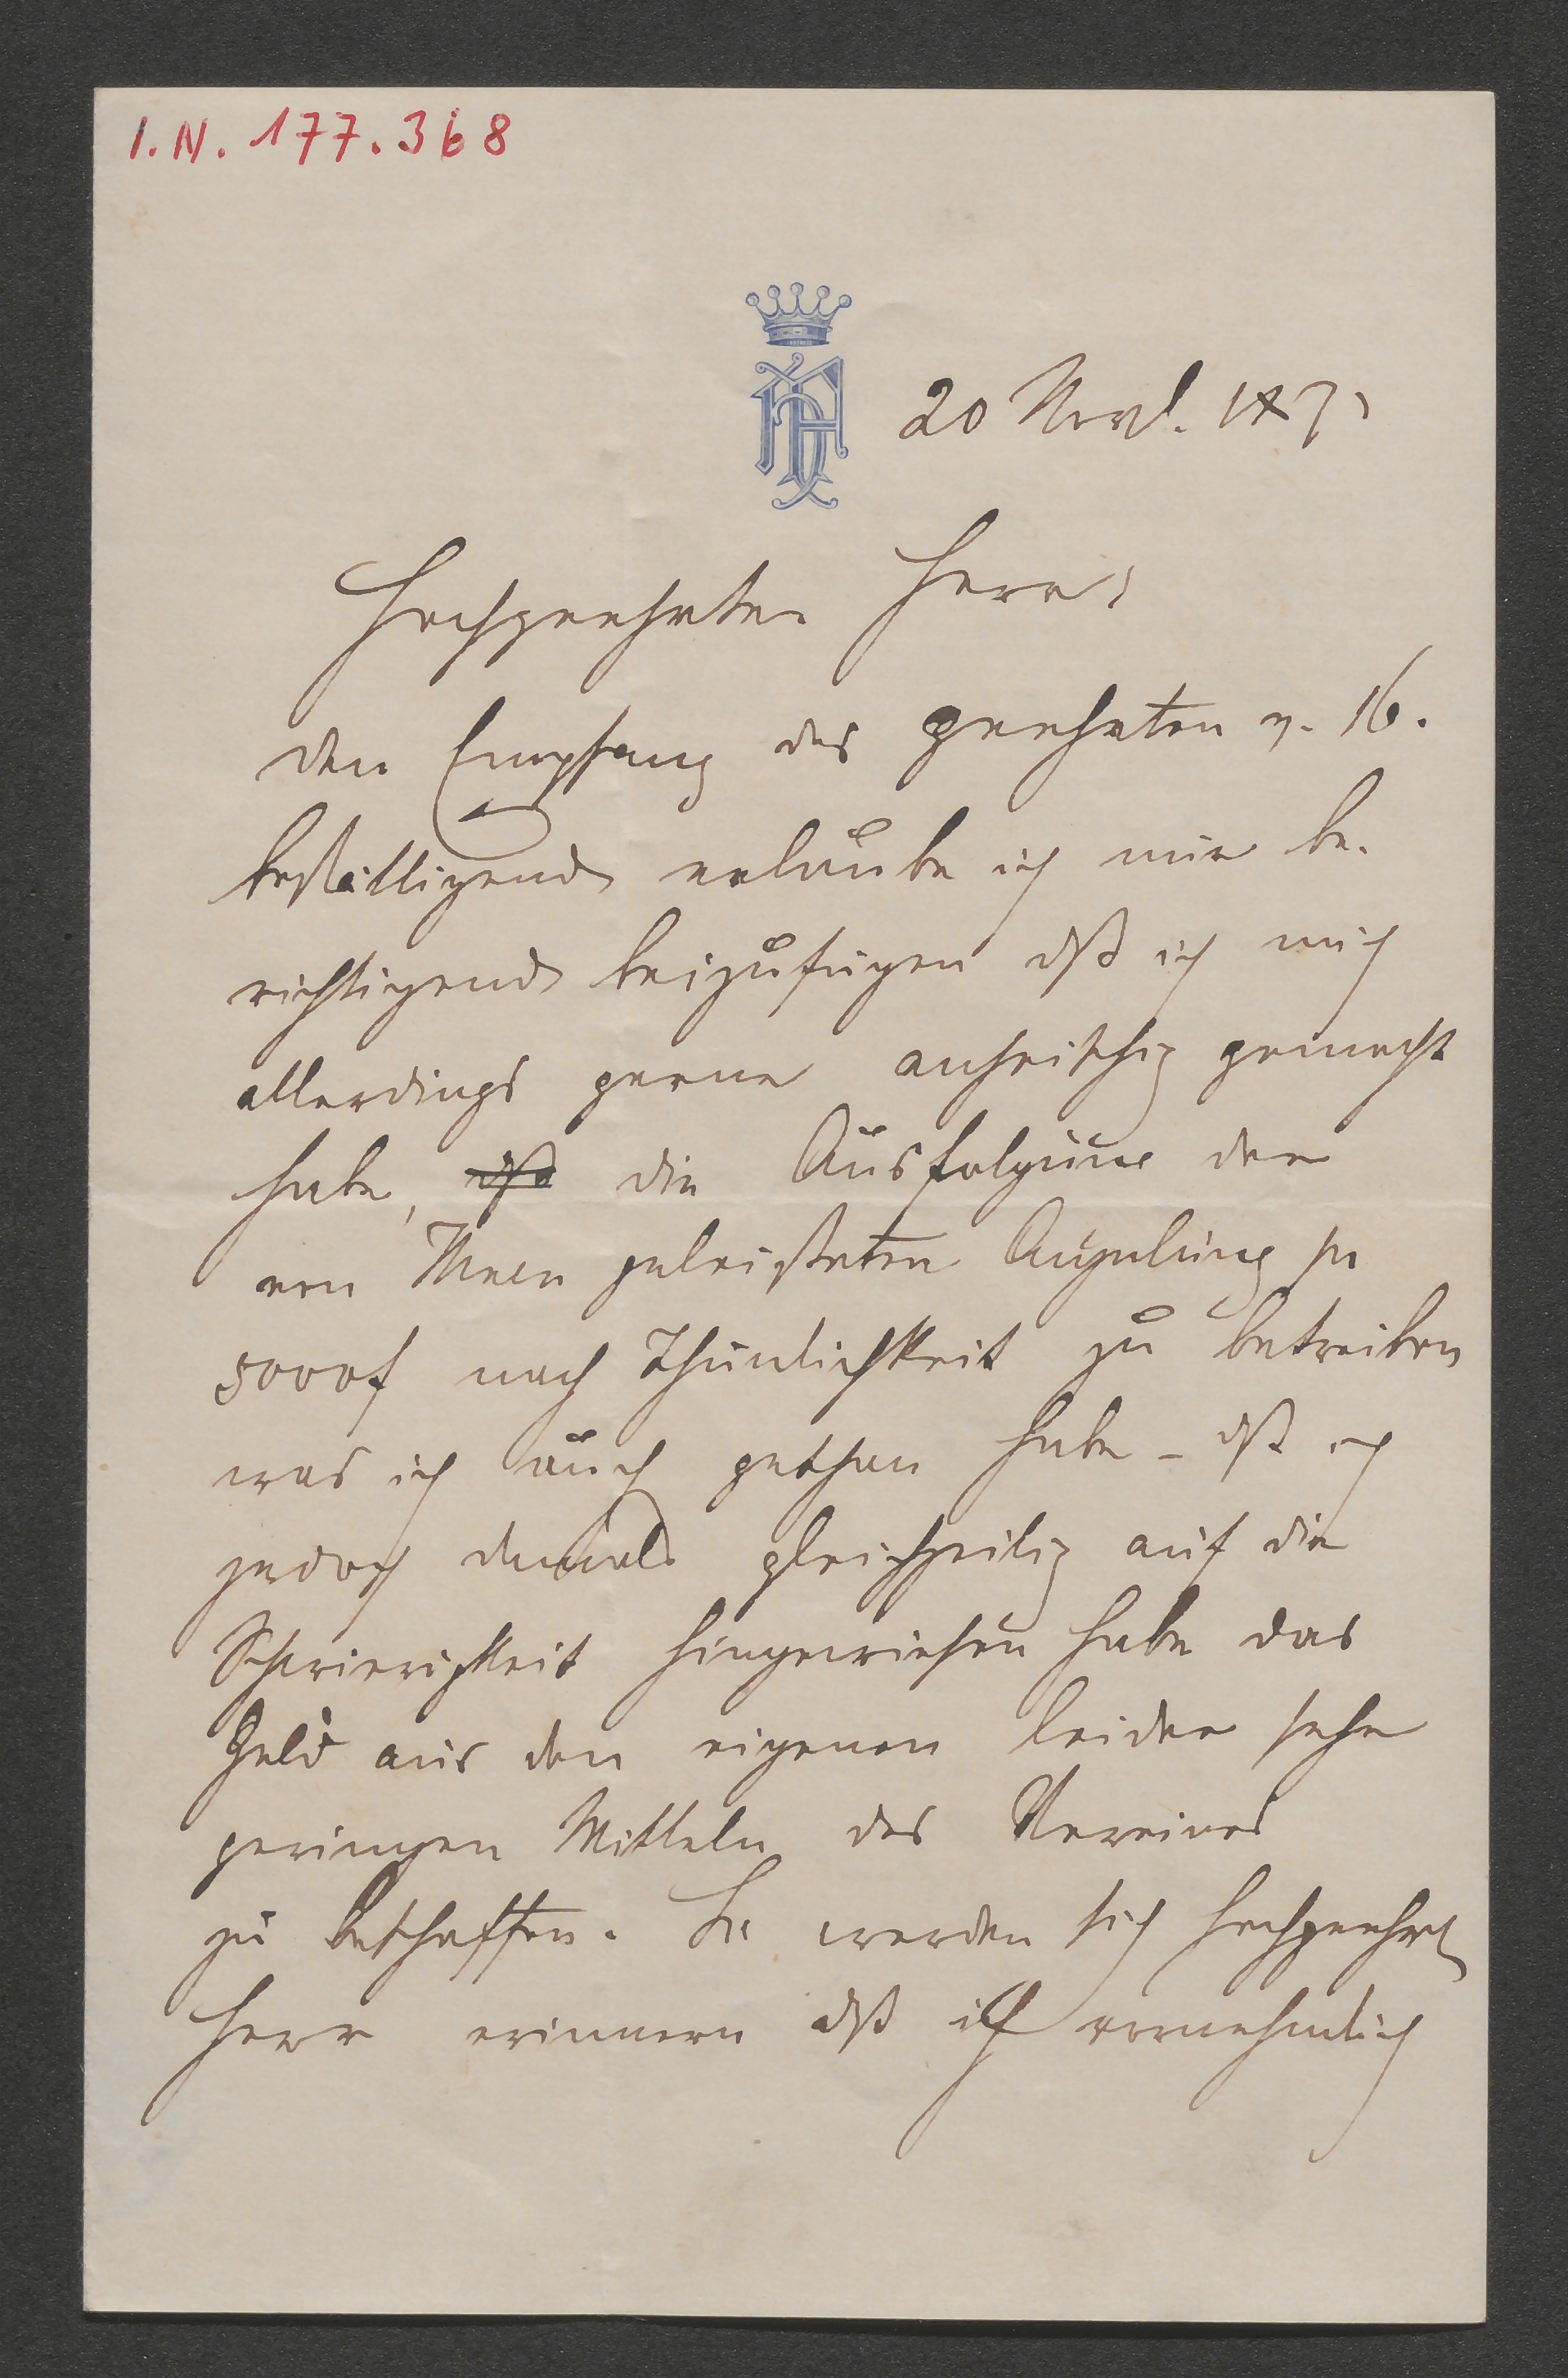 I.N. 177.368
20 Novb. 1871
Hochgeehrter Herr!
Den Empfang des geehrten v. 16.
bestättigend erlaube ich mir be-
richtigend beizufügen dß ich mich
allerdings gerne anheischig gemacht
habe, dß die Ausfolgung der
von Ihnen geleisteten Anzalung pr
5000f nach Thunlichkeit zu betreiben
was ich auch gethan habe – dß ich
jedoch damals gleichzeitig auf die
Schwierigkeit hingewiesen habe das
Geld aus den eigenen leider sehr
geringen Mitteln des Vereines
zu beschaffen. Sie werden sich hochgeehrt
Herr erinnern dß ich vornehmlich